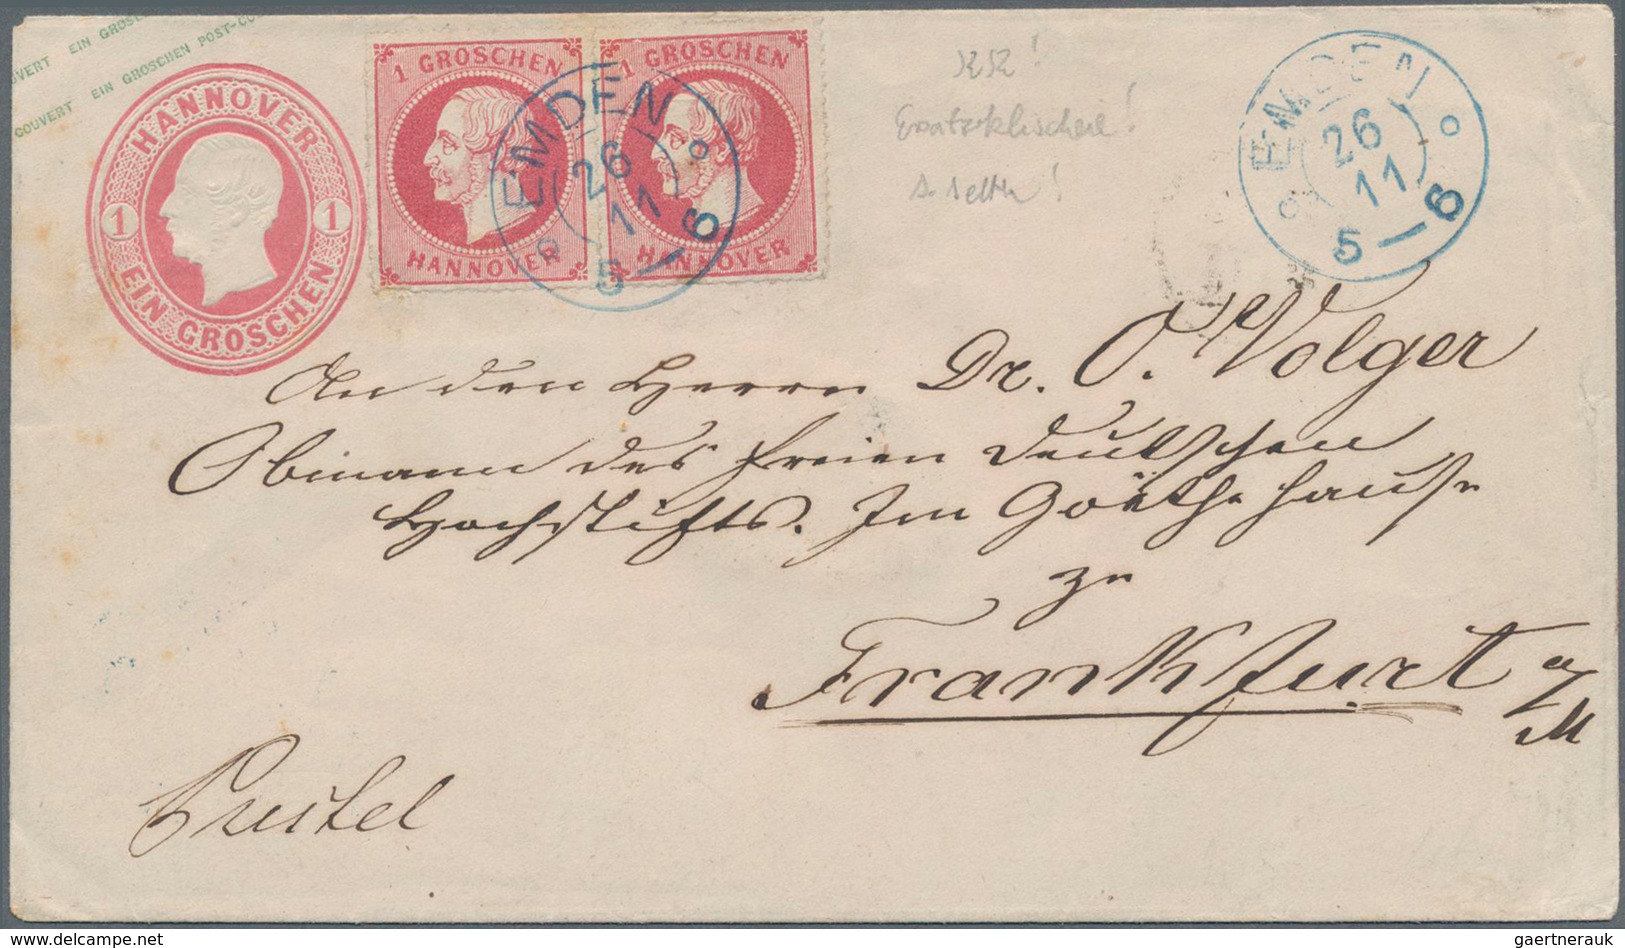 COUVERT EIN GROSCHEN
COUVERT EIN GROSCHEN POST-COUVERT
HANNOVER
1 1
EIN GROSCHEN
1 GROSCHEN
HANNOVER
1 GROSCHEN
HANNOVER
EMDEN
26
11
5—6
EMDEN
26
11
5—6
Ersatzklischee!
s. selten!
An den Herrn Dr. O. Volger
Obmann des freien deutschen
Hochstifts. Im Goethehause
zu
Frankfurt a/M
© www.delcampe.net
gaertnerauk